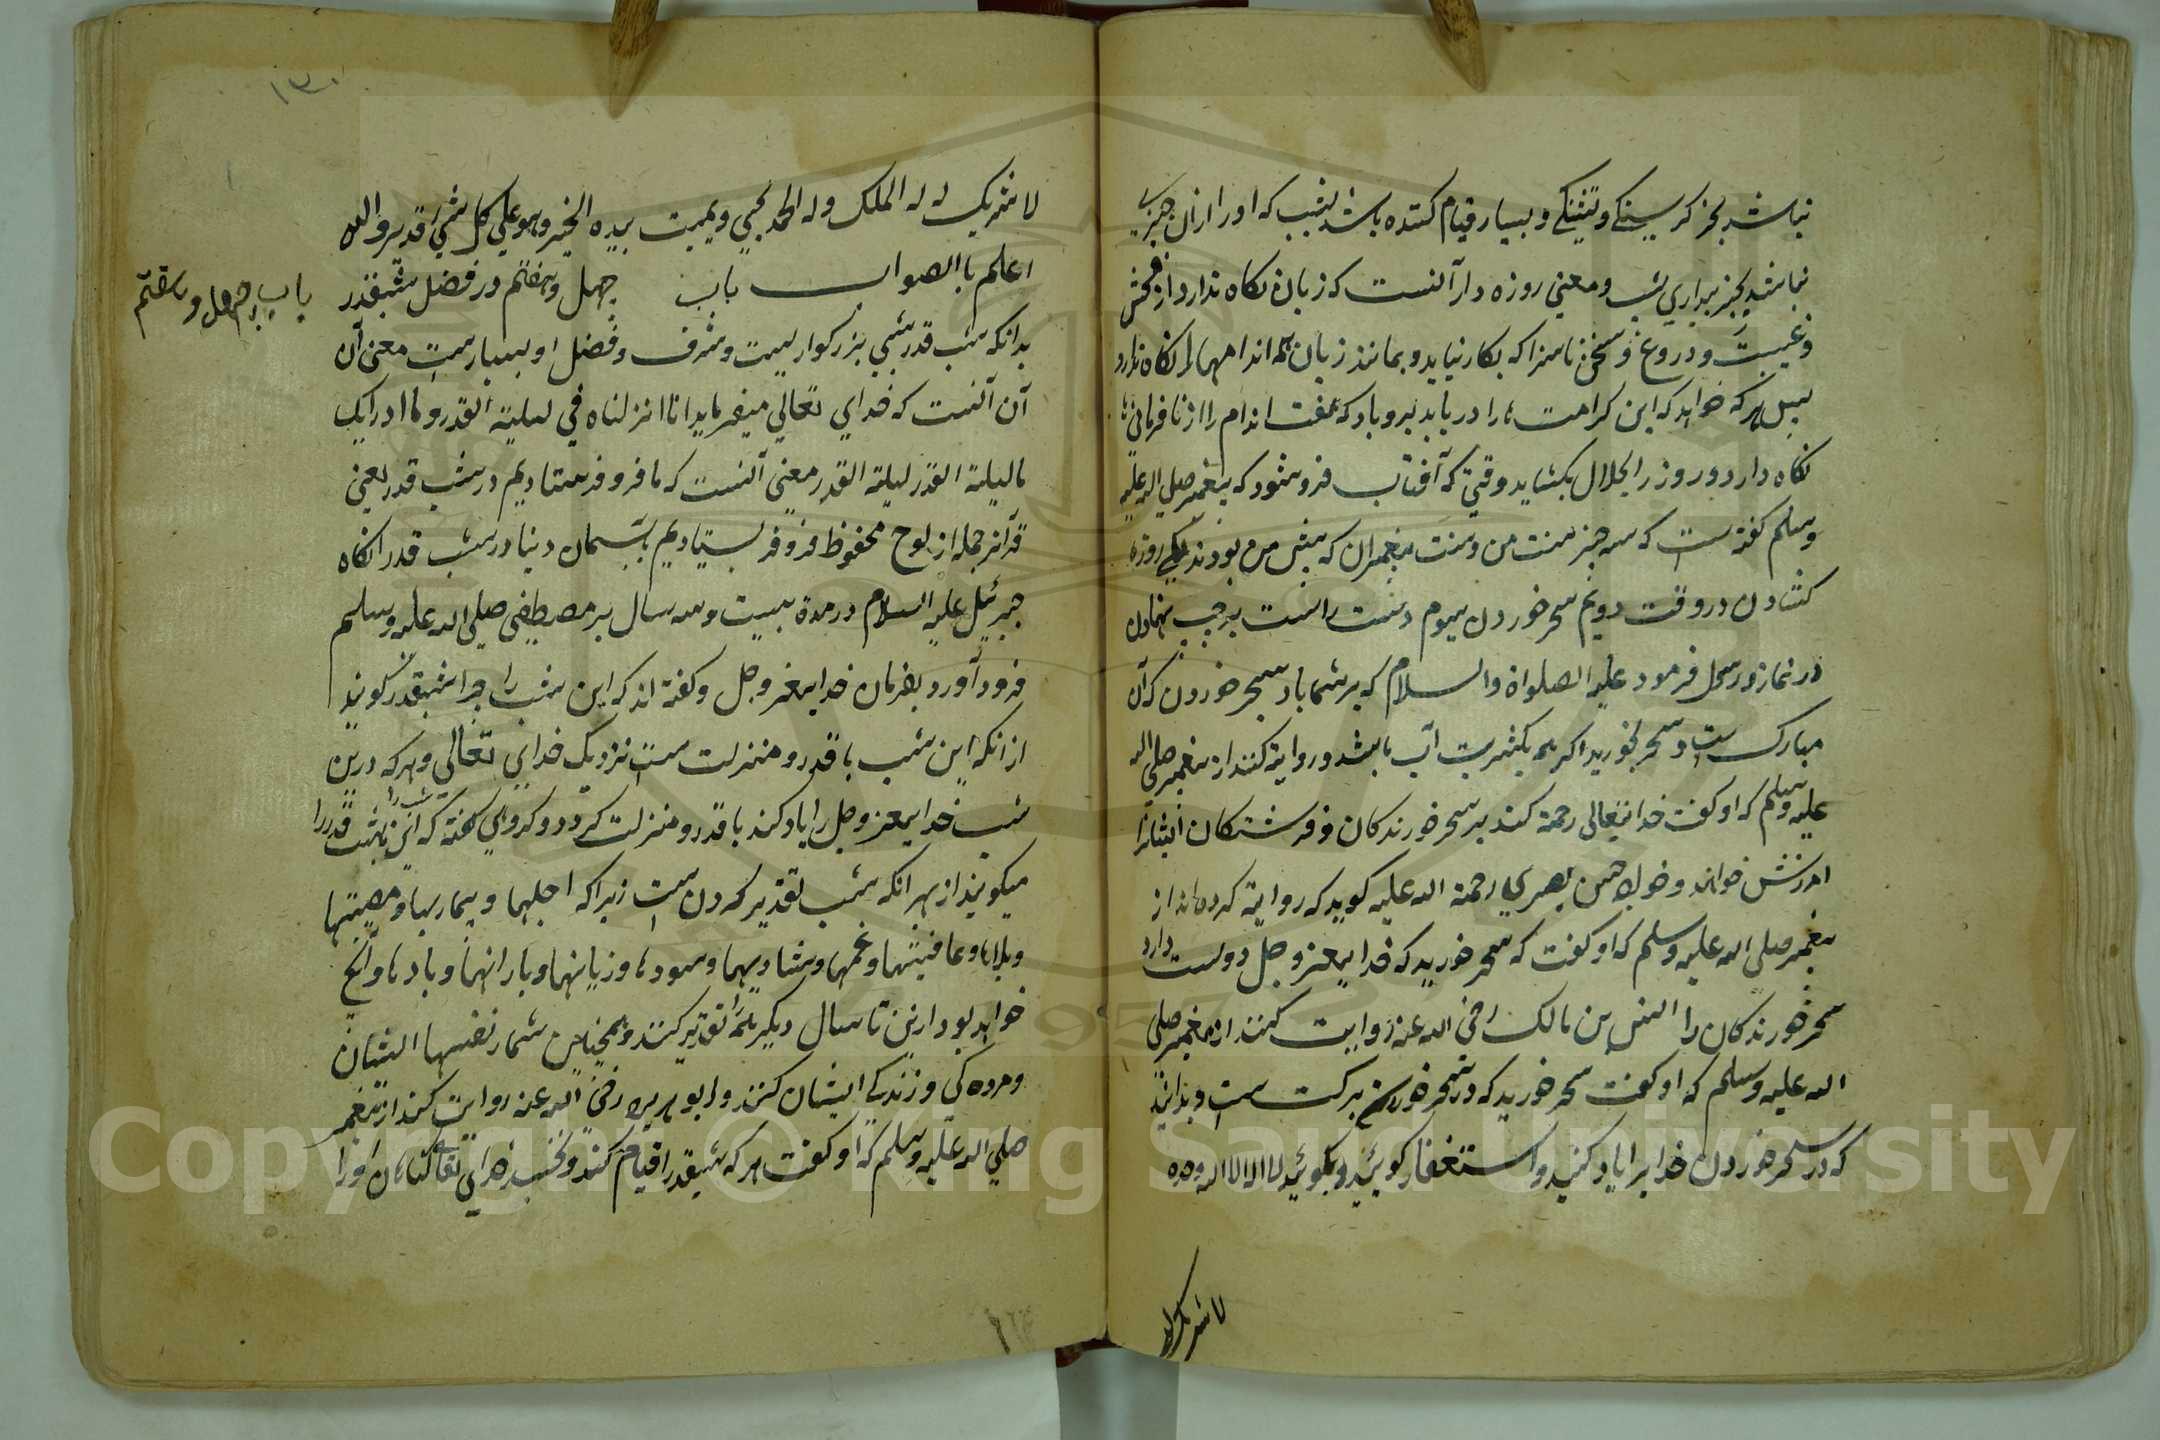 نباشد بجز کرسینکے و تیشنکے و بسیار قیام کننده باشد بشب که اورا ازان چیزی
نباشد بجز بیداري شب و معني روزه دار آنست که زبان نکاه ندارد از فحش
و غیبت و دروغ و سخن ناسزا که بکار نیاید و بمانند زبان همه اندامها را نکاه ندارد
سبیل هر که خواهد که این کرامت ها را دریابد برو باد که هفت اندام را از نافرمانی ها
نکاه دارد و روز را بحلال بکشاید وقتي که آفتاب فرو شود که پیغمبر صلي الله علیه
وسلم کفته است که سه چیز سنت من و سنت پیغمبران که پیش من بودند یکے روزه
کشادن در وقت دویم سحر خوردن سیوم دست راست بر چپ نهادن
در نماز و رسول فرمود علیه الصلواة والسلام که بر شما باد سحر خوردن که آن
مبارک است و سحر بخورید اکر همه یکشربت آب باشد و روایة کنند از پیغمبر صلي الله
علیه وسلم که او کفت خدایتعالی رحمة کند بر سحر خورندکان و فرشتکان ایشانرا
امرزش خواهند و خواجه حسن بصري رحمة الله علیه کوید که روایة کرده اند از
پیغمبر صلی الله علیه وسلم که او کفت که سحر خورید که خدایعزوجل دوست دارد
سحر خورندکان را انس بن مالک رضي الله عنه روایت کنند از پیغمبر صلی
الله علیه وسلم که او کفت سحر خورید که در سحر خوردن برکت است و بدانید
که در سحر خوردن خدایرا یاد کنید و استغفار کوئید و بکوئید لا اله الا الله وحده
لا شریک له
۱۳۰
لا شریک له له الملک وله الحمد یحیي ویمیت بیده الخیر وهو علي کل شيء قدیر والله
اعلم باالصواب باب چهل و هفتم در فضل شبقدر
باب چهل و هفتم
بدانکه شب قدر شبي بزرکوار است و شرف و فضل او بسیار است معني آن
آن آنست که خداي تعالي میفرماید انا انزلناه في لیلة القدر وما ادرایک
ما لیلة القدر لیلة القدر معني آنست که ما فرو فرستادیم در شب قدر یعني
قرآنرا جمله از لوح محفوظ فرو فرستادیم باسمان دنیا در شب قدر انکاه
جبرئیل علیه السلام در مدة بیست و سه سال بر مصطفی صلی الله علیه وسلم
فرود آورد بفرمان خدایعزوجل و کفته اند که این شب را چرا شبقدر کویند
از انکه این شب با قدر و منزلت است نزدیک خداي تعالي و هر که درین
شب خدایعزوجل را یاد کند با قدر و منزلت کردد و کروهي کفته که این شب را شب قدر را
میکویند از بهر انکه شب تقدیر کردن است زیرا که اجلها و بیماریها و مصیبتها
و بلاها و عافیتها و غمها و شادیها و سودها و زیانها و بارانها و بادها و آنچ
خواهد بود ازین تا سال دیکر همه را تقدیر کنند و همچنین شمار نفسها ایشان
و مرده کی و زندکے ایشان کنند و ابو هریره رضي الله عنه روایت کند از پیغمبر
صلي الله علیه وسلم که او کفت هر که شبقدر را قیام کند و نخسبد خداي تعالي کناهان اورا